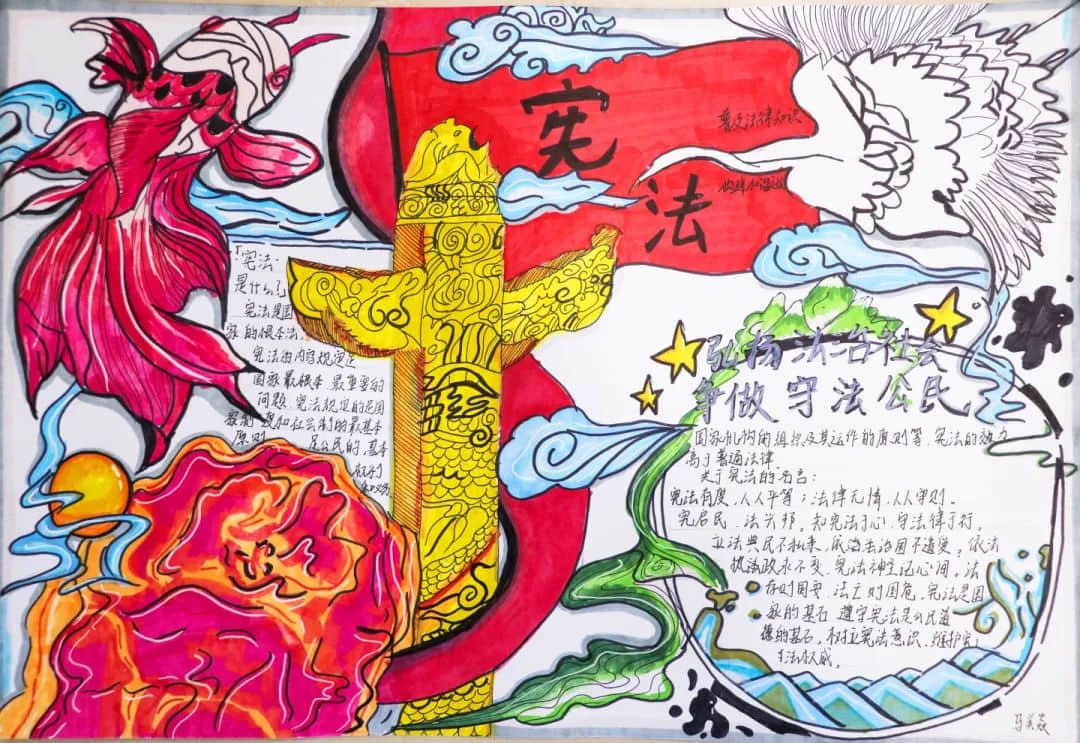 宪
法
普及法律知识
构建和谐社会
「宪法
是什么?」
宪法是国
家的根本法、
宪法的内容规定
国家最根本 最重要的
问题、宪法规定的是国
家制度和社会制的最基本
原则 是公民的、基本
权利
和义务
弘扬法治社会
争做守法公民
国家机构的组织及其运作的原则等、宪法的效力
高于普通法律
关于宪法的名言:
宪法有度、人人平等;法律无情、人人守则。
宪启民、法兴邦。知宪法于心、守法律于行。
立法与民不私来、依法治国不遗
执法政永不变、宪法神圣记心间。法
存则国安、法亡则国危。宪法是国
家的基石 遵守宪法是公民道
德的基石。树立宪法意识、维护宪
法权威。